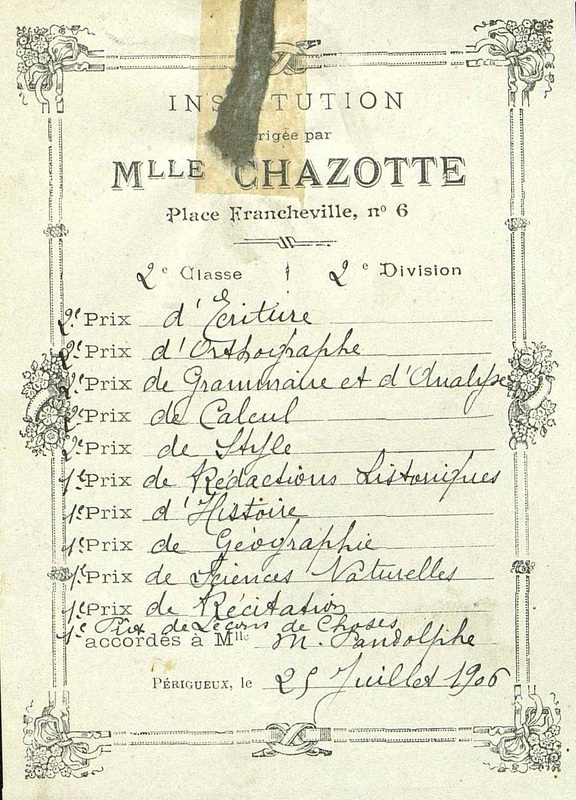 INSTITUTION
dirigée par
MLLE CHAZOTTE
Place Francheville, nº 6
2e Classe 2e Division
2e Prix d'Ecriture
2e Prix d'Orthographe
2e Prix de Grammaire et d'Analyse
2e Prix de Calcul
2e Prix de Style
1er Prix de Rédactions Historiques
1er Prix d'Histoire
1er Prix de Géographie
1er Prix de Sciences Naturelles
1er Prix de Récitation
1er Prix de Leçons de Choses
accordés à Mlle M. Pandolphe
PÉRIGUEUX, le 25 Juillet 1906